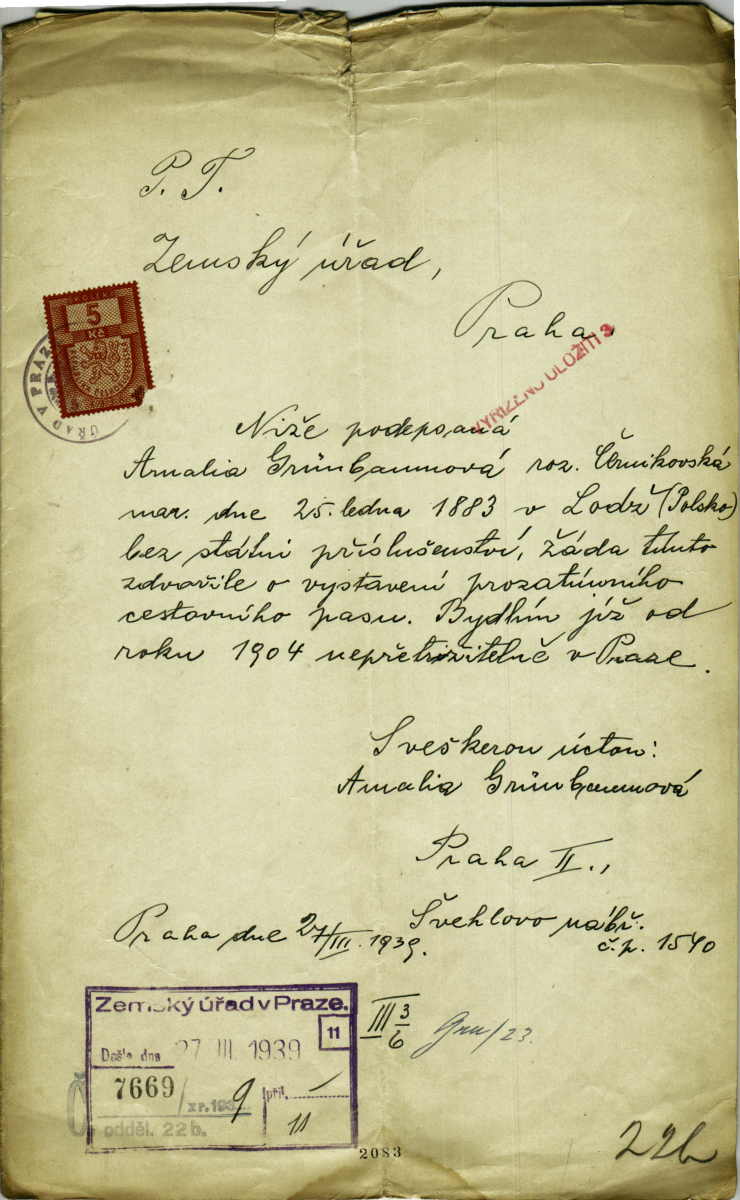 P. T.
Zemský úřad,
Praha.
5
Kč
ÚŘAD V PRAZE
VYŘÍZENO ULOŽITI
Níže podepsaná
Amalia Grünbaumová roz. Černikovská
nar. dne 25. ledna 1883 v Lodž (Polsko)
bez státní příslušenství, žáda tímto
zdvořile o vystavení prozatímního
cestovního pasu. Bydlím již od
roku 1904 nepřetržitelně v Praze.
S veškerou úctou:
Amalia Grünbaumová
Praha II.,
Švehlovo nábř.
č.p. 1540
Praha dne 27/III. 1939.
Zemský úřad v Praze.
11
Došlo dne 27 III 1939
7669 / XP.193 9 příl. –
Č
odděl. 22b. 11
III 3/6
2083
22b